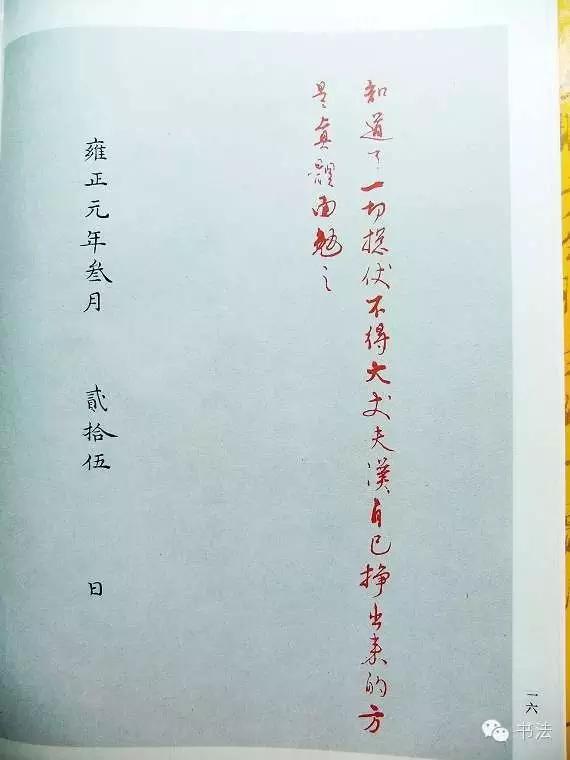 知道了一切總仗不得大丈夫漢自己掙出來的方
是真體面勉之
雍正元年叁月 貳拾伍 日
一六
书法